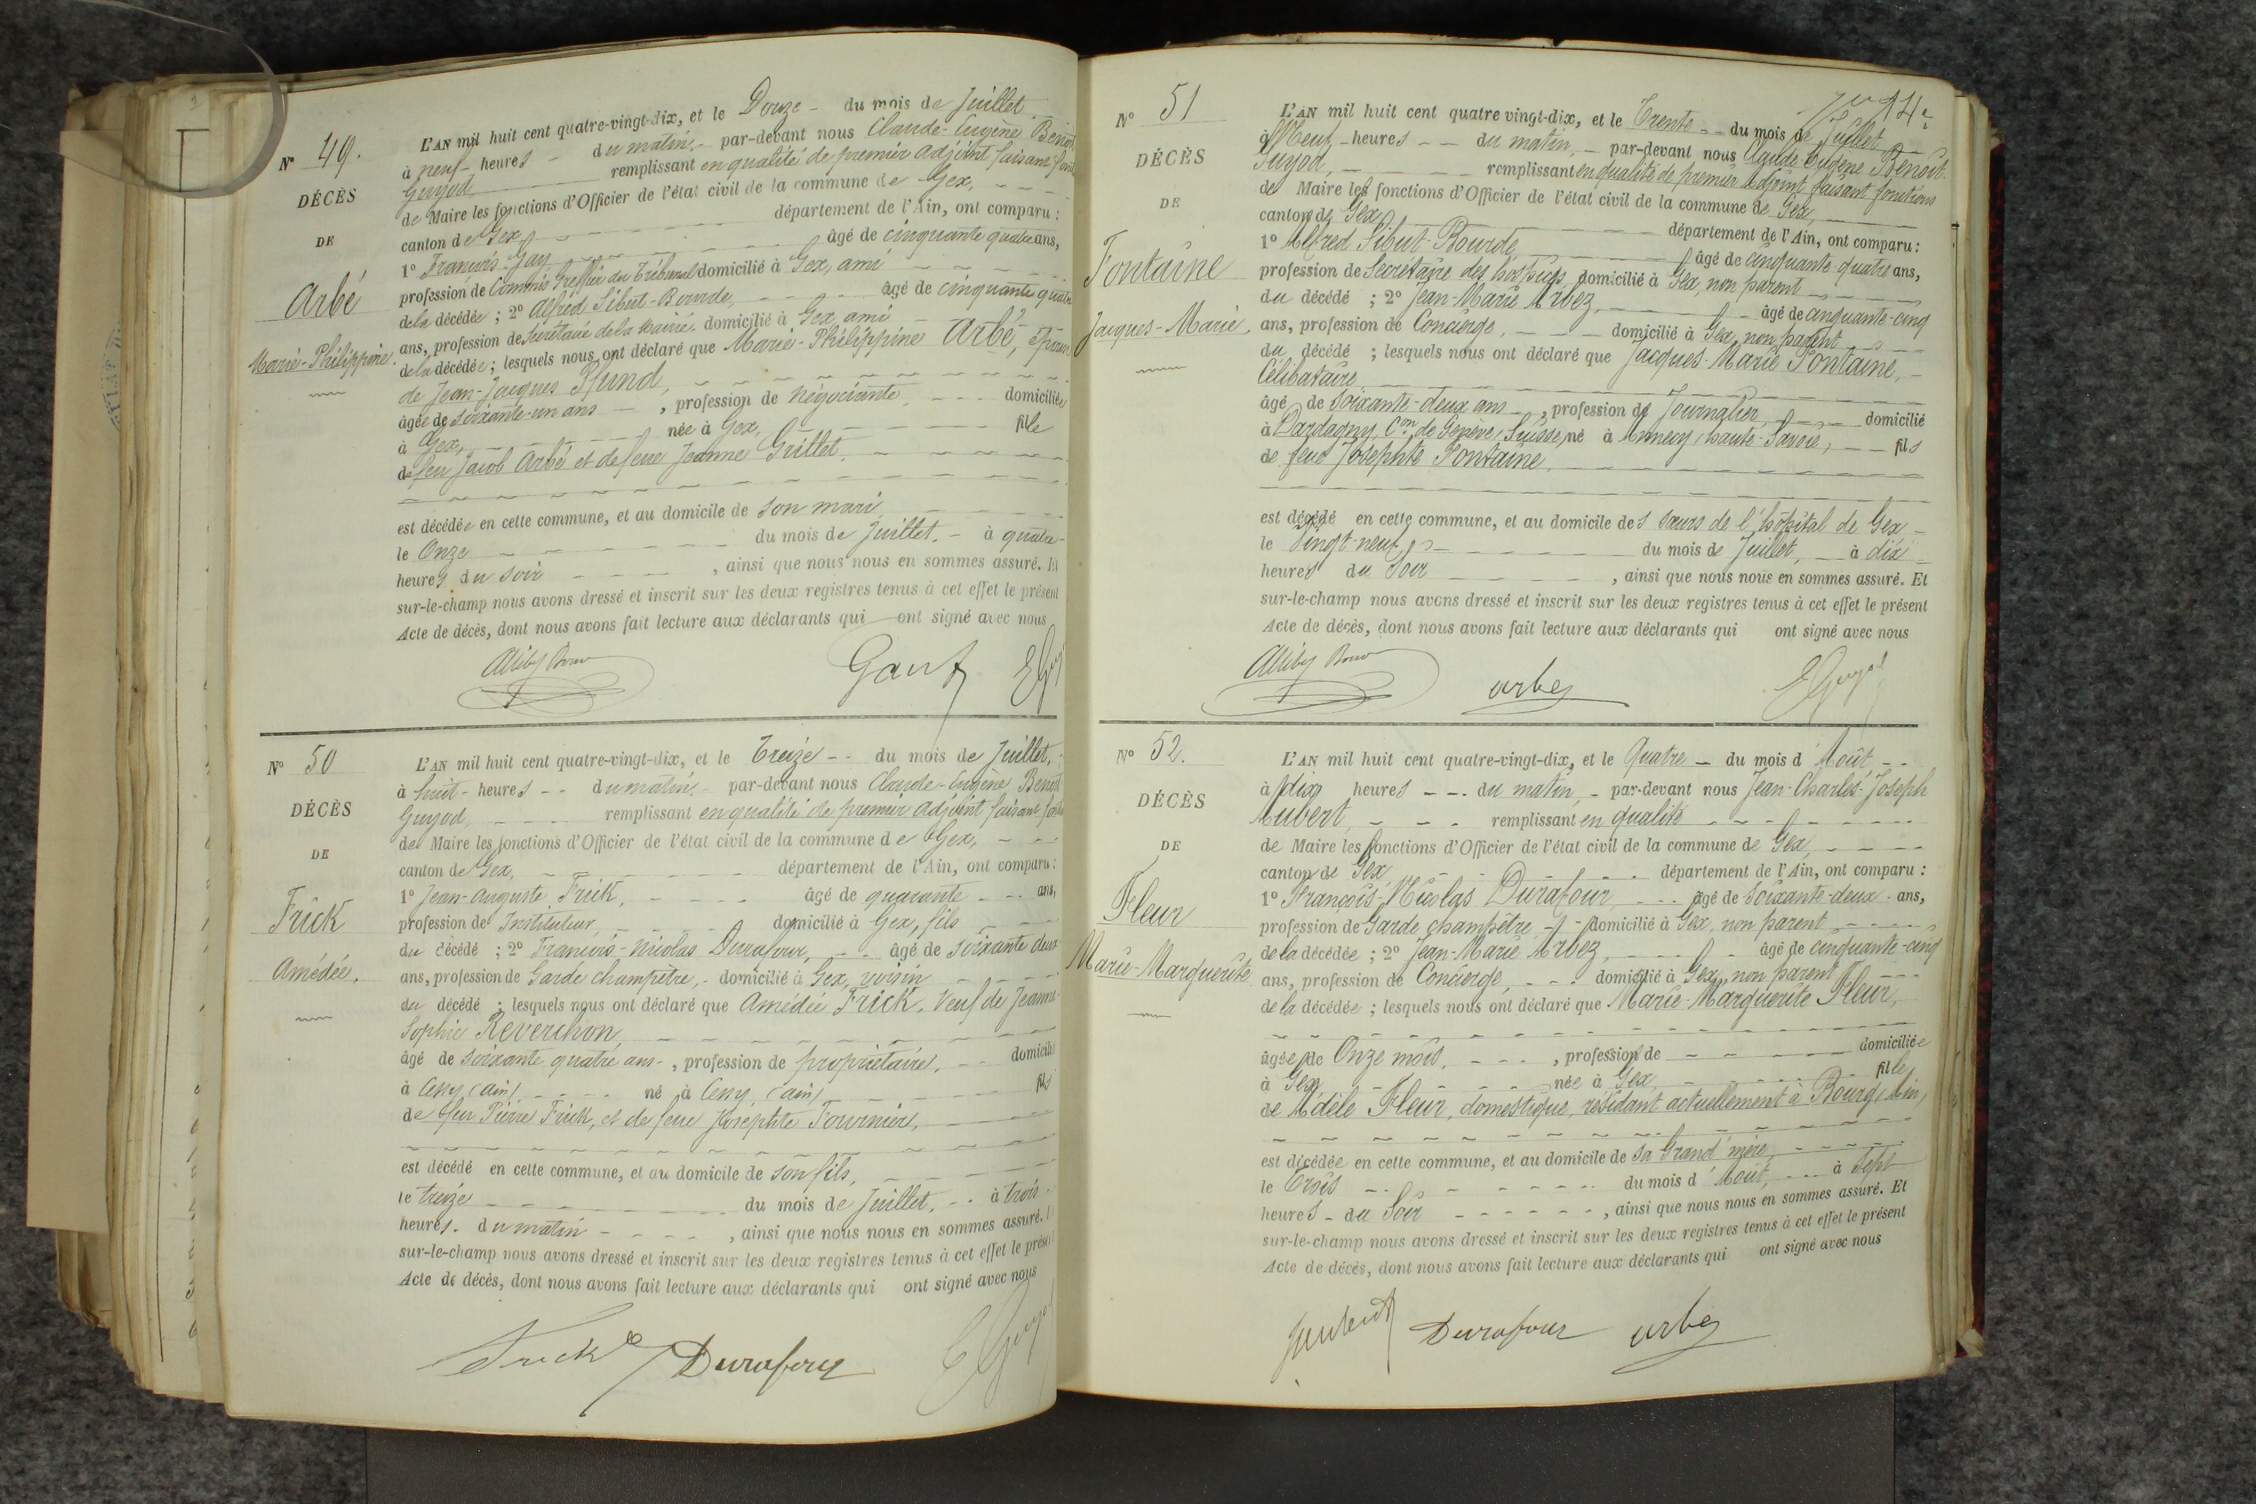 Nº 49.
DÉCÈS
DE
Arbé
Marie-Philippine.
L'AN mil huit cent quatre-vingt-dix, et le Douze - du mois de Juillet
à neuf - heures - du matin, - par-devant nous Claude-Eugène Benoit
Guyod remplissant en qualité de premier adjoint faisant
de Maire les fonctions d'Officier de l'état civil de la commune de Gex,
canton de Gex département de l'Ain, ont comparu :
1º François Gay âgé de cinquante quatre ans,
profession de Commis Greffier du Tribunal domicilié à Gex, ami
de la décédée ; 2º Alfred Sibut-Bourde, âgé de cinquante quatre
ans, profession de Secrétaire de la mairie domicilié à Gex, ami
de la décédée ; lesquels nous ont déclaré que Marie-Philippine Arbé, épouse
de Jean-Jacques Pfund,
âgée de soixante-un ans - , profession de négociante domiciliée
à Gex, née à Gex, fille
de feu Jacob Arbé et de feue Jeanne Grillet.
est décédée en cette commune, et au domicile de son mari
le Onze du mois de Juillet. - à quatre
heures du soir , ainsi que nous nous en sommes assuré. Et
sur-le-champ nous avons dressé et inscrit sur les deux registres tenus à cet effet le présent
Acte de décès, dont nous avons fait lecture aux déclarants qui ont signé avec nous
Nº 50
DÉCÈS
DE
Frick
Amédée.
L'AN mil huit cent quatre-vingt-dix, et le Treize - - du mois de Juillet,
à huit - heures - - du matin, - par-devant nous Claude-Eugène Benoit
Guyod, remplissant en qualité de premier adjoint faisant
de Maire les fonctions d'Officier de l'état civil de la commune de Gex,
canton de Gex, département de l'Ain, ont comparu :
1º Jean-Auguste Frick, âgé de quarante ans,
profession de Instituteur, domicilié à Gex, fils
du décédé ; 2º François-Nicolas Durafour, âgé de soixante deux
ans, profession de Garde champêtre, - domicilié à Gex, voisin
du décédé ; lesquels nous ont déclaré que Amédée Frick. Veuf de Jeanne-
Sophie Reverchon,
âgé de soixante quatre ans - , profession de propriétaire, domicilié
à Cessy (ain) né à Cessy (ain) fils
de feu Pierre Frick, et de feue Josephte Fournier,
est décédé en cette commune, et au domicile de son fils,
le treize du mois de Juillet, à trois
heures. du matin , ainsi que nous nous en sommes assuré.
sur-le-champ nous avons dressé et inscrit sur les deux registres tenus à cet effet le présent
Acte de décès, dont nous avons fait lecture aux déclarants qui ont signé avec nous
Frick Durafour E Guyod
Nº 51
DÉCÈS
DE
Fontaine
Jacques-Marie.
L'AN mil huit cent quatre vingt-dix, et le Trente - - du mois de Juillet
à Neuf - heures - - du matin, - par-devant nous Claude Eugène Benoit
Guyod, remplissant en qualité de premier adjoint faisant fonctions
de Maire les fonctions d'Officier de l'état civil de la commune de Gex
canton de Gex département de l'Ain, ont comparu :
1º Alfred Sibut-Bourde âgé de cinquante quatre ans,
profession de Secrétaire des hospices domicilié à Gex, non parent
du décédé ; 2º Jean-Marie Arbez, âgé de cinquante-cinq
ans, profession de Concierge, domicilié à Gex, non parent
du décédé ; lesquels nous ont déclaré que Jacques-Marie Fontaine,
Célibataire
âgé de soixante-deux ans - , profession de Journalier, domicilié
à Dardagny, Con de Genève, Suisse, né à Annecy, haute-Savoie, fils
de feue Josephte Fontaine.
est décédé en cette commune, et au domicile des soeurs de l'hôpital de Gex -
le Vingt-neuf, du mois de Juillet, à dix
heures du Soir , ainsi que nous nous en sommes assuré. Et
sur-le-champ nous avons dressé et inscrit sur les deux registres tenus à cet effet le présent
Acte de décès, dont nous avons fait lecture aux déclarants qui ont signé avec nous
arbez E Guyod
Nº 52.
DÉCÈS
DE
Fleur
Marie-Marguerite
L'AN mil huit cent quatre vingt-dix, et le Quatre - du mois d'Août - -
à dix heures - - du matin, - par-devant nous Jean-Charles-Joseph
Aubert, remplissant en qualité
de Maire les fonctions d'Officier de l'état civil de la commune de Gex,
canton de Gex département de l'Ain, ont comparu :
1º François-Nicolas Durafour âgé de soixante-deux ans,
profession de Garde champêtre - domicilié à Gex, non parent
de la décédée ; 2º Jean-Marie Arbez, âgé de cinquante-cinq
ans, profession de Concierge, domicilié à Gex, non parent
de la décédée ; lesquels nous ont déclaré que Marie-Marguerite Fleur,
âgée de Onze mois. , profession de domiciliée
à Gex née à Gex, fille
de Adèle Fleur, domestique, résidant actuellement à Bourg, Ain,
est décédée en cette commune, et au domicile de sa Grand'mère,
le Trois du mois d'Août, à sept
heures - du Soir , ainsi que nous nous en sommes assuré. Et
sur-le-champ nous avons dressé et inscrit sur les deux registres tenus à cet effet le présent
Acte de décès, dont nous avons fait lecture aux déclarants qui ont signé avec nous
Durafour arbez